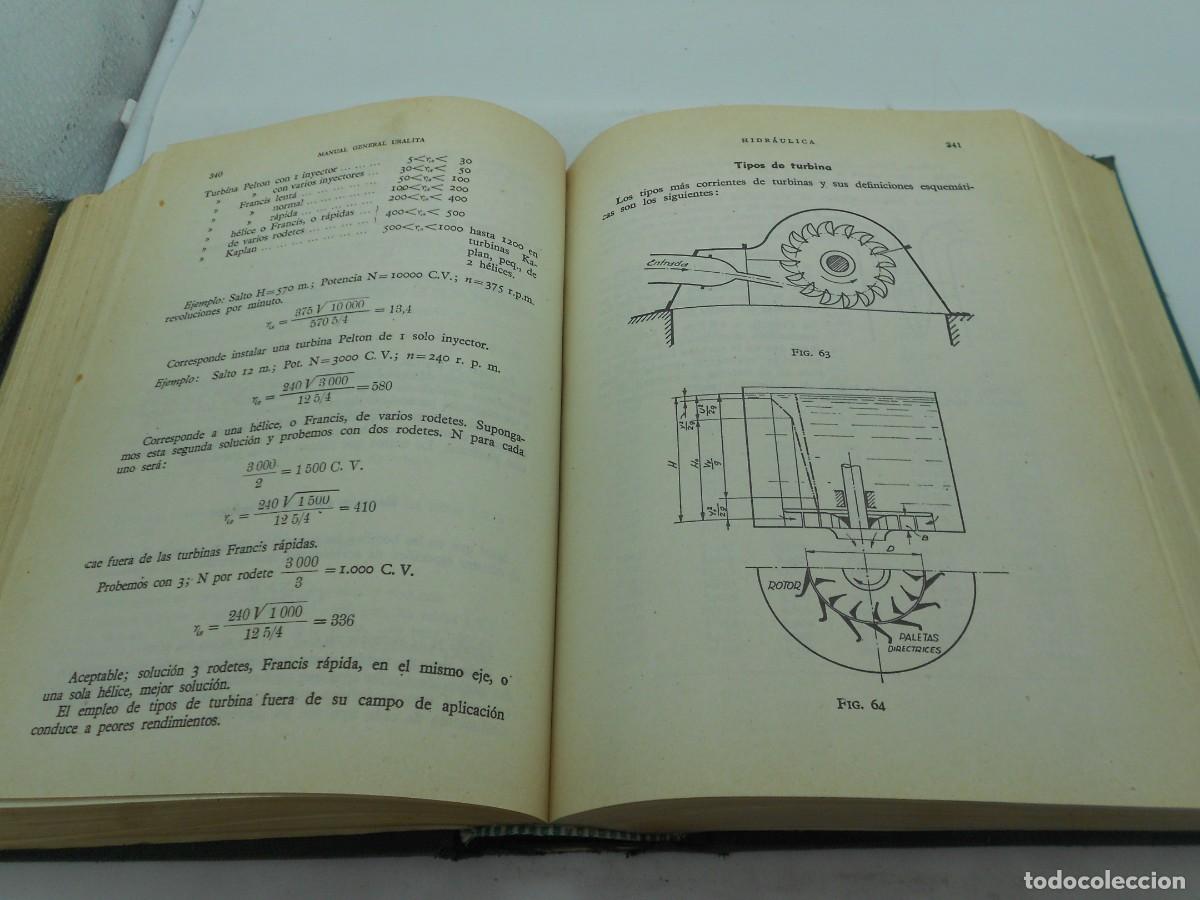 340
MANUAL GENERAL URALITA
Turbina Pelton con 1 injector ... ... ... 5<rₐ< 30
» » con varios inyectores ... 30<rₐ< 50
» Francis lenta ... ... ... ... ... 50<rₐ< 100
» » normal ... ... ... ... 100<rₐ< 200
» » rápida ... ... ... ... 200<rₐ< 400
» hélice o Francis, o rápidas ... } 400<rₐ< 500
» de varios rodetes ... ... ... ... }
» Kaplan ... ... ... ... ... ... ... 500<rₐ<1000 hasta 1200 en
turbinas Ka-
plan, peq., de
2 hélices.
Ejemplo: Salto H=570 m.; Potencia N=10000 C.V.; n=375 r.p.m.
revoluciones por minuto.
rₐ = 375 √10 000 / 570 5/4 = 13,4
Corresponde instalar una turbina Pelton de 1 solo inyector.
Ejemplo: Salto 12 m.; Pot. N=3000 C. V.; n=240 r. p. m.
rₐ = 240 √3 000 / 12 5/4 = 580
Corresponde a una hélice, o Francis, de varios rodetes. Suponga-
mos esta segunda solución y probemos con dos rodetes. N para cada
uno será:
3 000 / 2 = 1 500 C. V.
rₐ = 240 √1 500 / 12 5/4 = 410
cae fuera de las turbinas Francis rápidas.
Probemos con 3; N por rodete 3 000 / 3 = 1.000 C. V.
rₐ = 240 √1 000 / 12 5/4 = 336
Aceptable; solución 3 rodetes, Francis rápida, en el mismo eje, o
una sola hélice, mejor solución.
El empleo de tipos de turbina fuera de su campo de aplicación
conduce a peores rendimientos.
HIDRÁULICA
241
Tipos de turbina
Los tipos más corrientes de turbinas y sus definiciones esquemáti-
cas son los siguientes:
Entrada
FIG. 63
H
B
D
ROTOR
PALETAS
DIRECTRICES
FIG. 64
todocoleccion